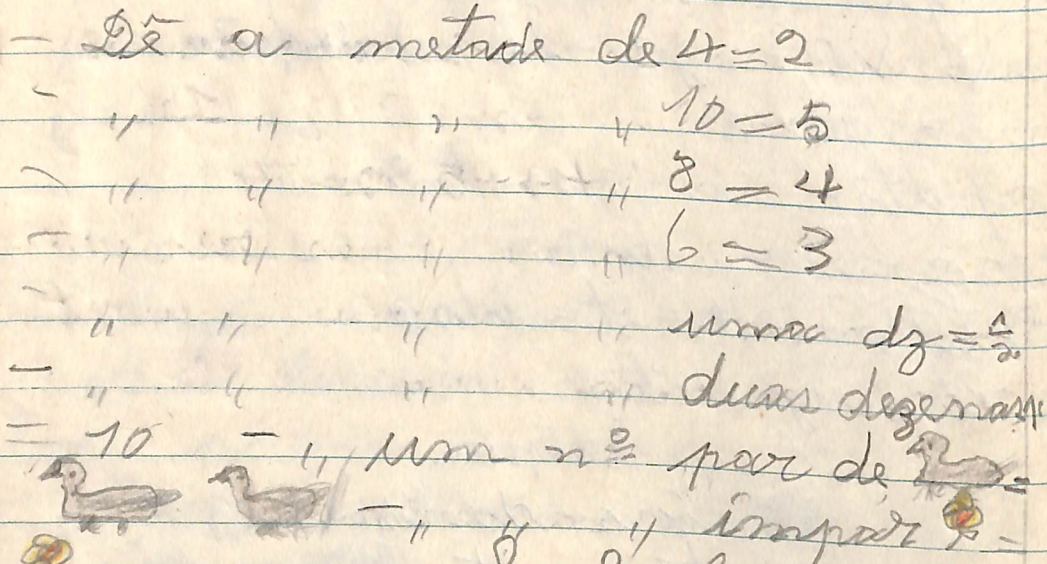 - Dê a metade de 4 = 2
- " " " " 10 = 5
- " " " " 8 = 4
- " " " " 6 = 3
- " " " uma dz = 1/2
- " " " " duas dezenas
= 10 - " um nº par de =
- " " " impar =